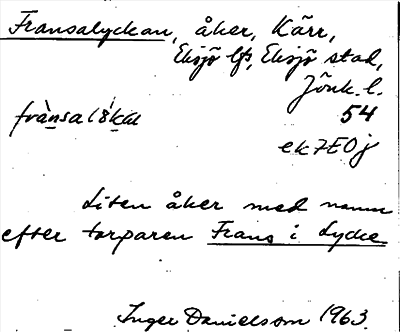 Fransalyckan, åker, Kärr,
Eksjö lfs, Eksjö stad,
Jönk. l.
54
ek 7E0j
Liten åker med namn
efter torparen Frans i Lycke
Inger Danielsson 1963